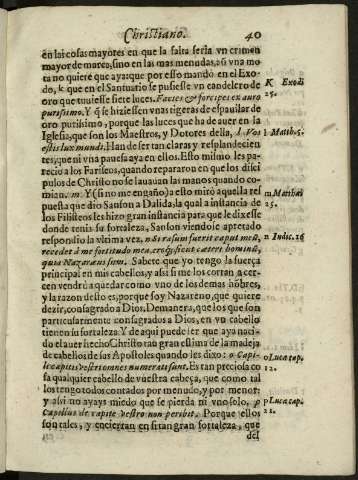 Christiano. 40
en las cosas mayores en que la falta seria vn crimen
mayor de marca, sino en las mas menudas, aũ vna mo
ta no quiere que aya: que por esso mandó en el Exo-
do, k que en el Santuario se pusiesse vn candelero de
oro que tuuiesse siete luces. Factes & forcipes ex auro
purissimo. Y que se hiziessen vnas tigeras de espauilar de
oro purissimo, porque las luces que ha de auer en la
Iglesia, que son los Maestros, y Dotores della, l Vos
estis lux mundi. Han de ser tan claras y resplandecien
tes, que ni vna pauesa aya en ellos. Esto mismo les pa-
recio a los Fariseos, quando repararon en que los disci
pulos de Christo no se lauauan las manos quando co-
mian. m Y (si no me engaño) a esto miró aquella res
puesta que dio Sanson a Dalida, la qual a instancia de
los Filisteos les hizo gran instancia para que le dixesse
donde tenia su fortaleza, Sanson viendose apretado
respondio la vltima vez, n si rasum fuerit caput meũ,
recedet à me fortitudo mea, eroq́; sicut cæteri hominũ,
quia Nazaræus sum. Sabete que yo tengo la fuerça
principal en mis cabellos, y assi si me los cortan a cer-
cen vendrà a quedar como vno de los demas hõbres,
y la razon desto es, porque soy Nazareno, que quiere
dezir, consagrado a Dios. Demanera, que los que son
particularmente consagrados a Dios, en vn cabello
tienen su fortaleza Y de aqui puede ser que aya naci-
do el auer hecho Christo tan gran estima de la madeja
de cabellos de sus Apostoles quando les dixo: o Capi-
li capitis vestri omnes numerati sunt. Es tan preciosa co
sa qualquier cabello de vuestra cabeça, que como tal
los tengo todos contados por menudo, y por menor:
y assi no ayays miedo que se pierda ni vno solo. p
Capillus de capite vestro non peribit. Porque ellos
son tales, y encierran en si tan gran fortaleza, que
del
K Exodi
25.
l Matth. 5.
m Matthæi
25.
n Iudic. 16
o Luca cap.
12.
p Luca cap.
21.